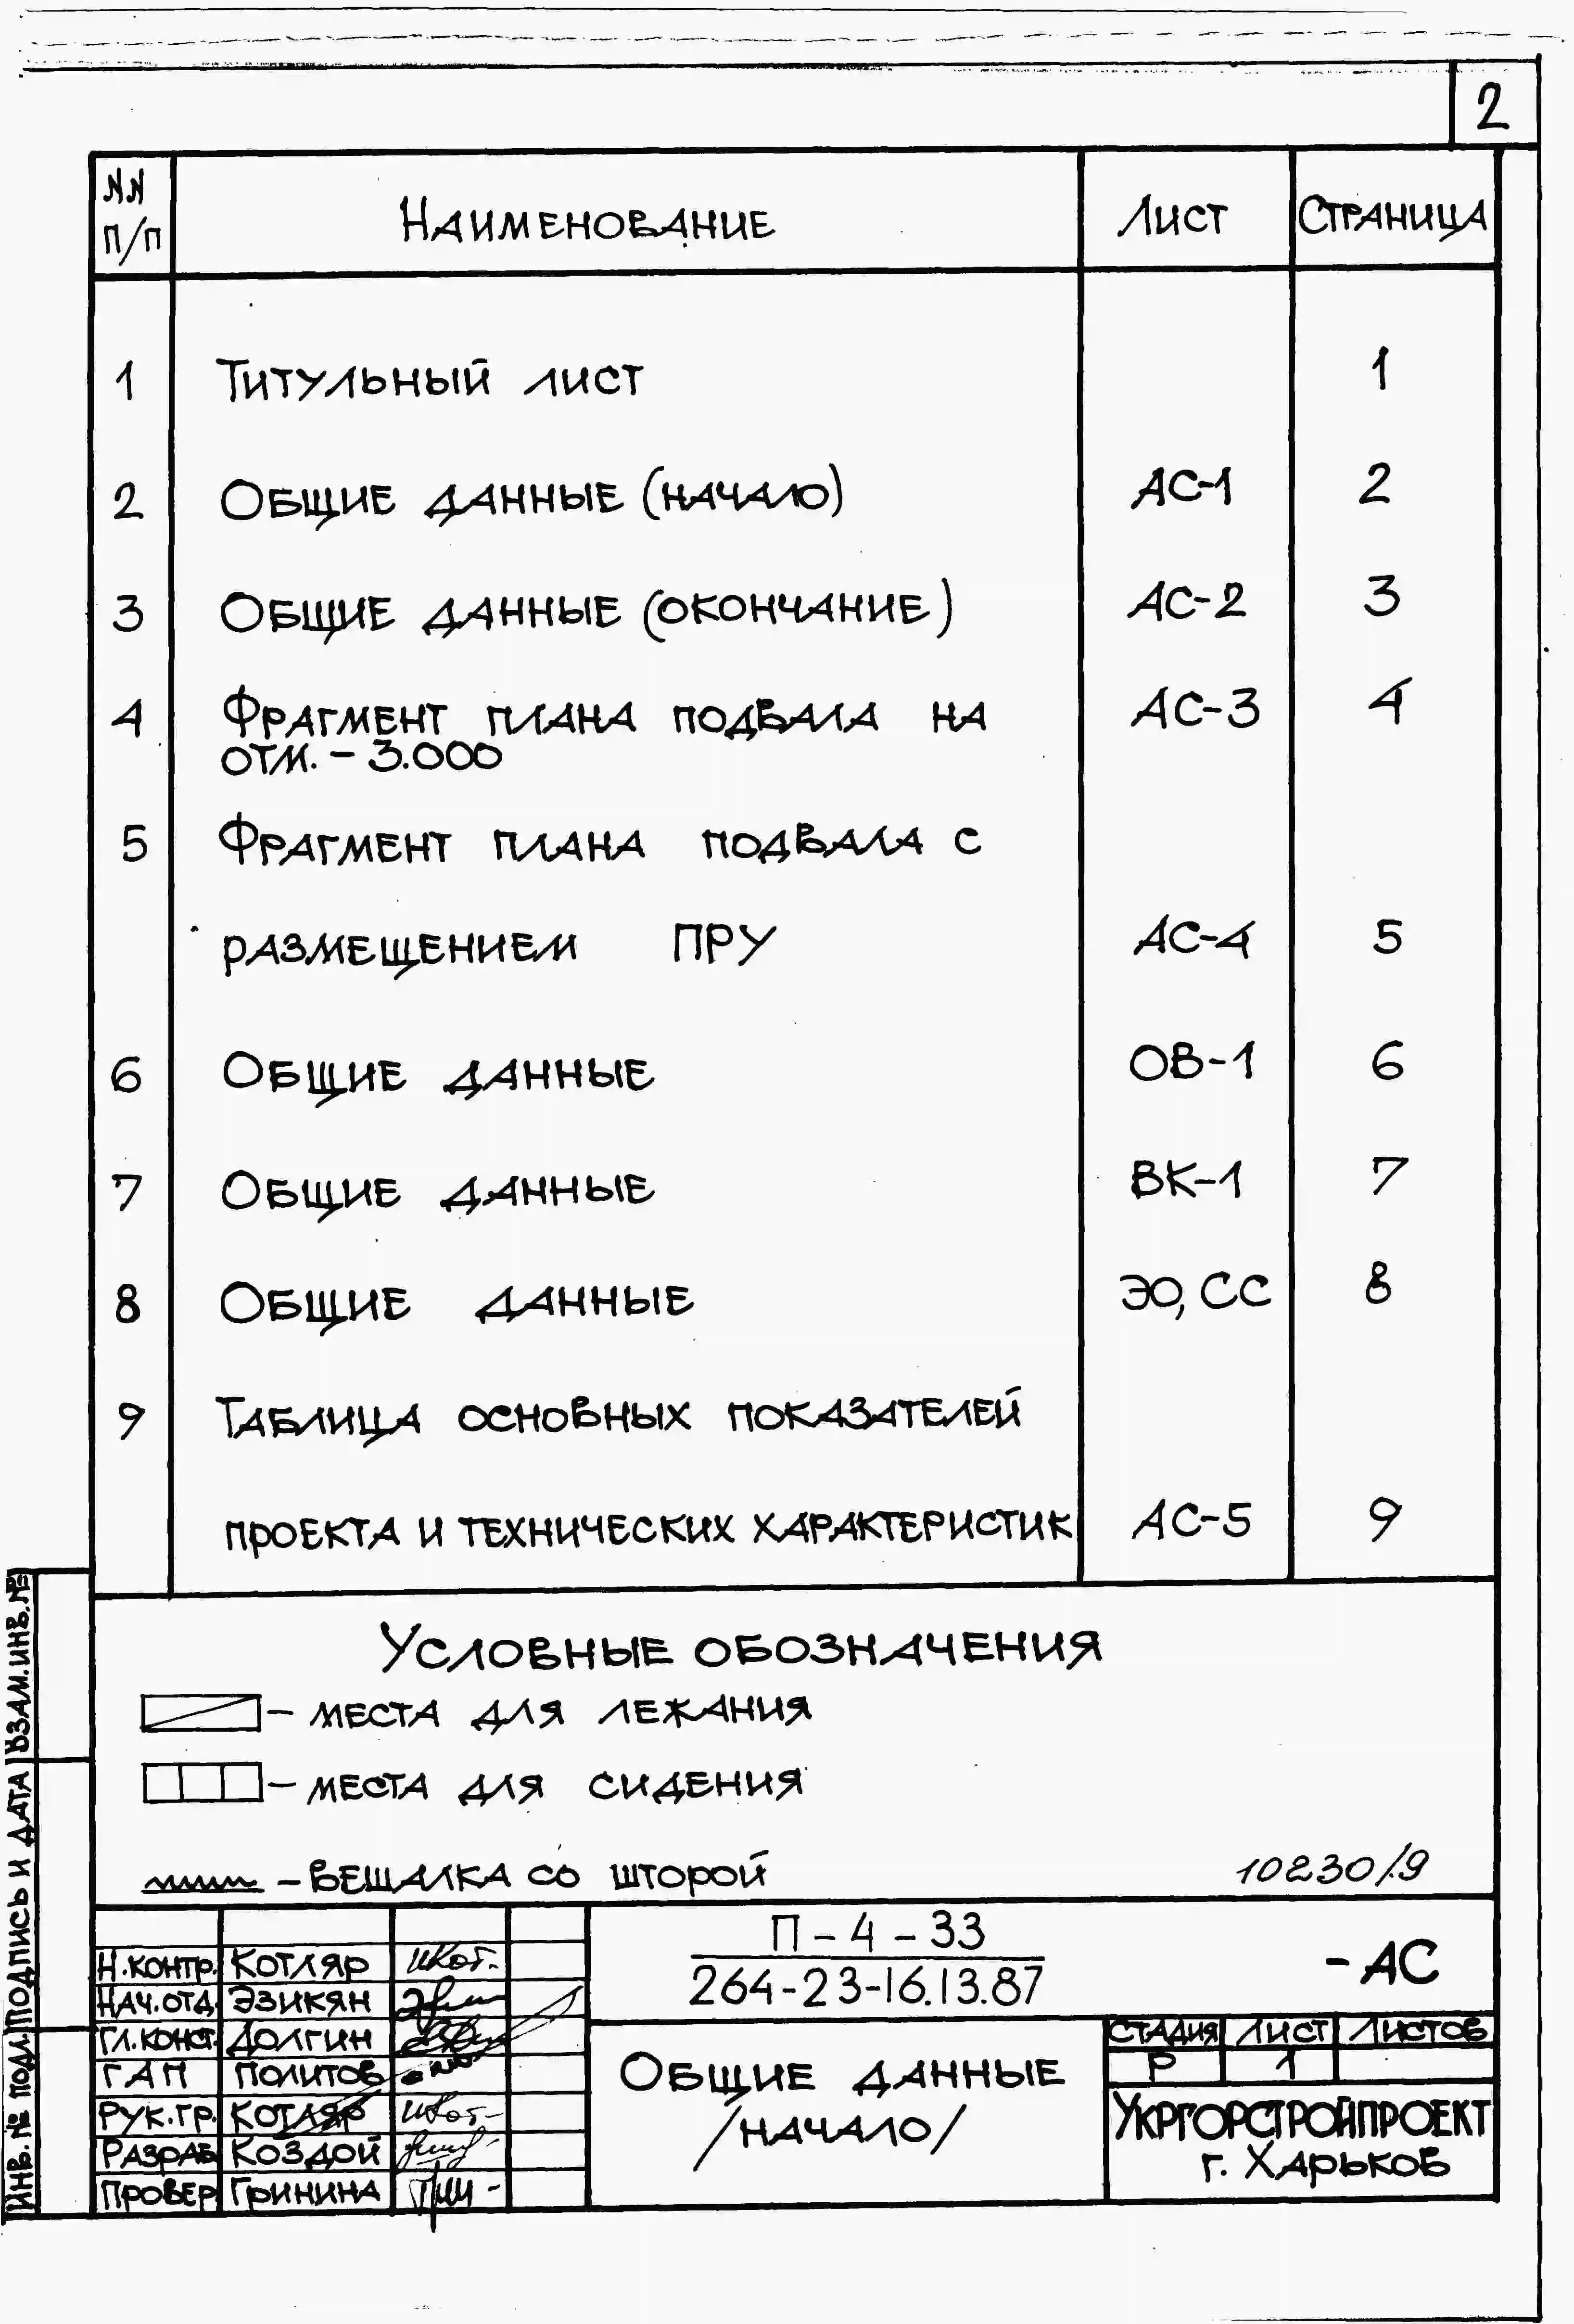 2
NN п/п Наименование Лист Страница
1 Титульный лист 1
2 Общие данные (начало) АС-1 2
3 Общие данные (окончание) АС-2 3
4 Фрагмент плана подвала на АС-3 4
отм. - 3.000
5 Фрагмент плана подвала с
размещением ПРУ АС-4 5
6 Общие данные ОВ-1 6
7 Общие данные ВК-1 7
8 Общие данные ЭО, СС 8
9 Таблица основных показателей
проекта и технических характеристик АС-5 9
Условные обозначения
- места для лежания
- места для сидения
- вешалка со шторой
10230/9
П - 4 - 33
264-23-16.13.87
- АС
Н.контр. Котляр
Нач.отд. Эзикян
Гл.конст. Долгин
ГАП Политов
Рук.гр. Котляр
Разраб. Коздой
Провер Гринина
Общие данные
/начало/
Стадия Лист Листов
Р 1
Укргорстройпроект
г. Харьков
Инв. № подл. Подпись и дата Взам.инв.№